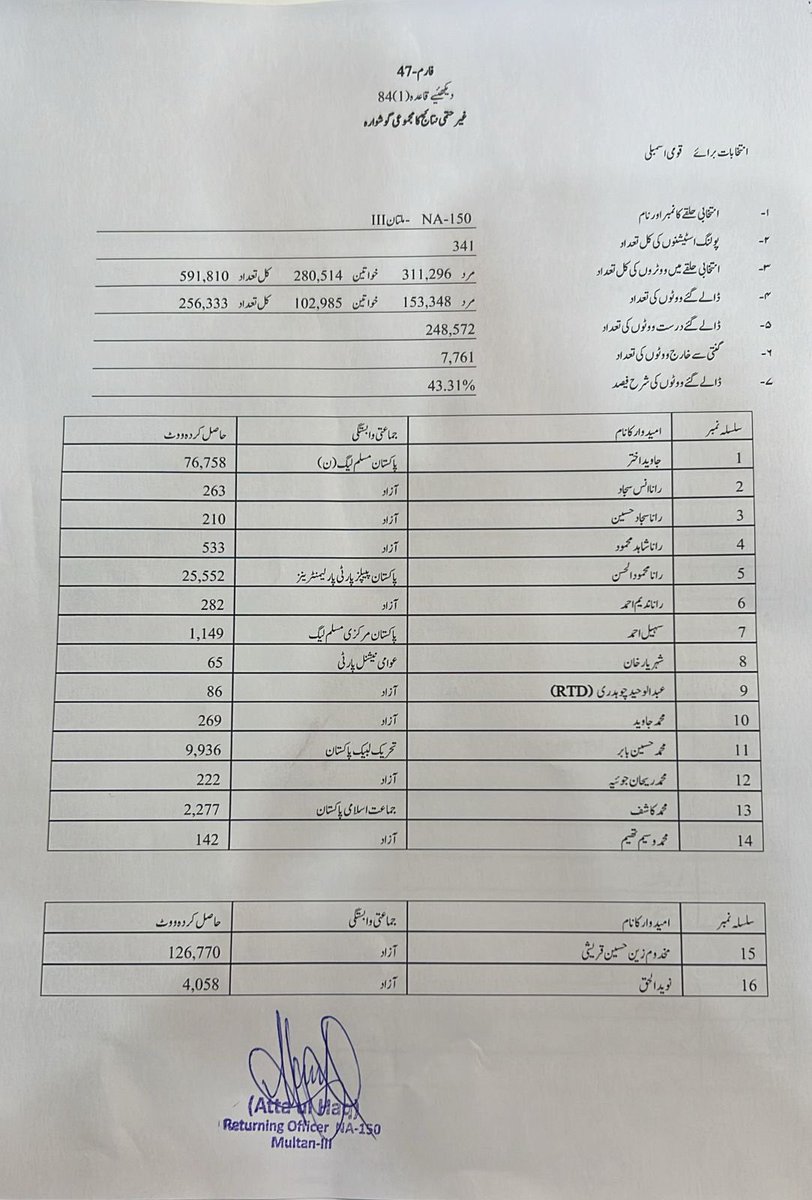 فارم-47
دیکھئیے قاعدہ (1)84
غیر حتمی نتائج کا مجموعی گوشوارہ
انتخابات برائے قومی اسمبلی
۱- انتخابی حلقے کا نمبر اور نام NA-150 -ملتان III
۲- پولنگ اسٹیشنوں کی کل تعداد 341
۳- انتخابی حلقے میں ووٹروں کی کل تعداد مرد 311,296 خواتین 280,514 کل تعداد 591,810
۴- ڈالے گئے ووٹوں کی تعداد مرد 153,348 خواتین 102,985 کل تعداد 256,333
۵- ڈالے گئے درست ووٹوں کی تعداد 248,572
۶- گنتی سے خارج ووٹوں کی تعداد 7,761
۷- ڈالے گئے ووٹوں کی شرح فیصد 43.31%
سلسلہ نمبر امیدوار کا نام جماعتی وابستگی حاصل کردہ ووٹ
1 جاوید اختر پاکستان مسلم لیگ (ن) 76,758
2 رانا انس سجاد آزاد 263
3 رانا سجاد حسین آزاد 210
4 رانا شاہد محمود آزاد 533
5 رانا محمود الحسن پاکستان پیپلز پارٹی پارلیمنٹرینز 25,552
6 رانا ندیم احمد آزاد 282
7 سہیل احمد پاکستان مرکزی مسلم لیگ 1,149
8 شہریار خان عوامی نیشنل پارٹی 65
9 عبدالوحید چوہدری (RTD) آزاد 86
10 محمد جاوید آزاد 269
11 محمد حسین بابر تحریک لبیک پاکستان 9,936
12 محمد ریحان جوئیہ آزاد 222
13 محمد کاشف جماعت اسلامی پاکستان 2,277
14 محمد وسیم تھیم آزاد 142
سلسلہ نمبر امیدوار کا نام جماعتی وابستگی حاصل کردہ ووٹ
15 مخدوم زین حسین قریشی آزاد 126,770
16 نوید الحق آزاد 4,058
(Atta ul Haq)
Returning Officer NA-150
Multan-III